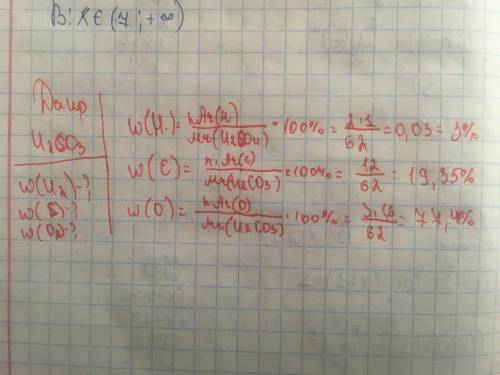 В: x ∈ (7 ; +∞)
Дано
H₂CO₃
w(H₂)-?,
w(C)-?,
w(O)-?,
w(H.) = nAr(H) / Mr(H₂CO₄) · 100% = 2·1 / 62 = 0,03 = 3%
w(C) = n·Ar(c) / Mr(H₂CO3) · 100% = 12 / 62 = 19,35%
w(O) = nAr(O) / Mr(H₂CO3) · 100% = 3·16 / 62 = 77,4%